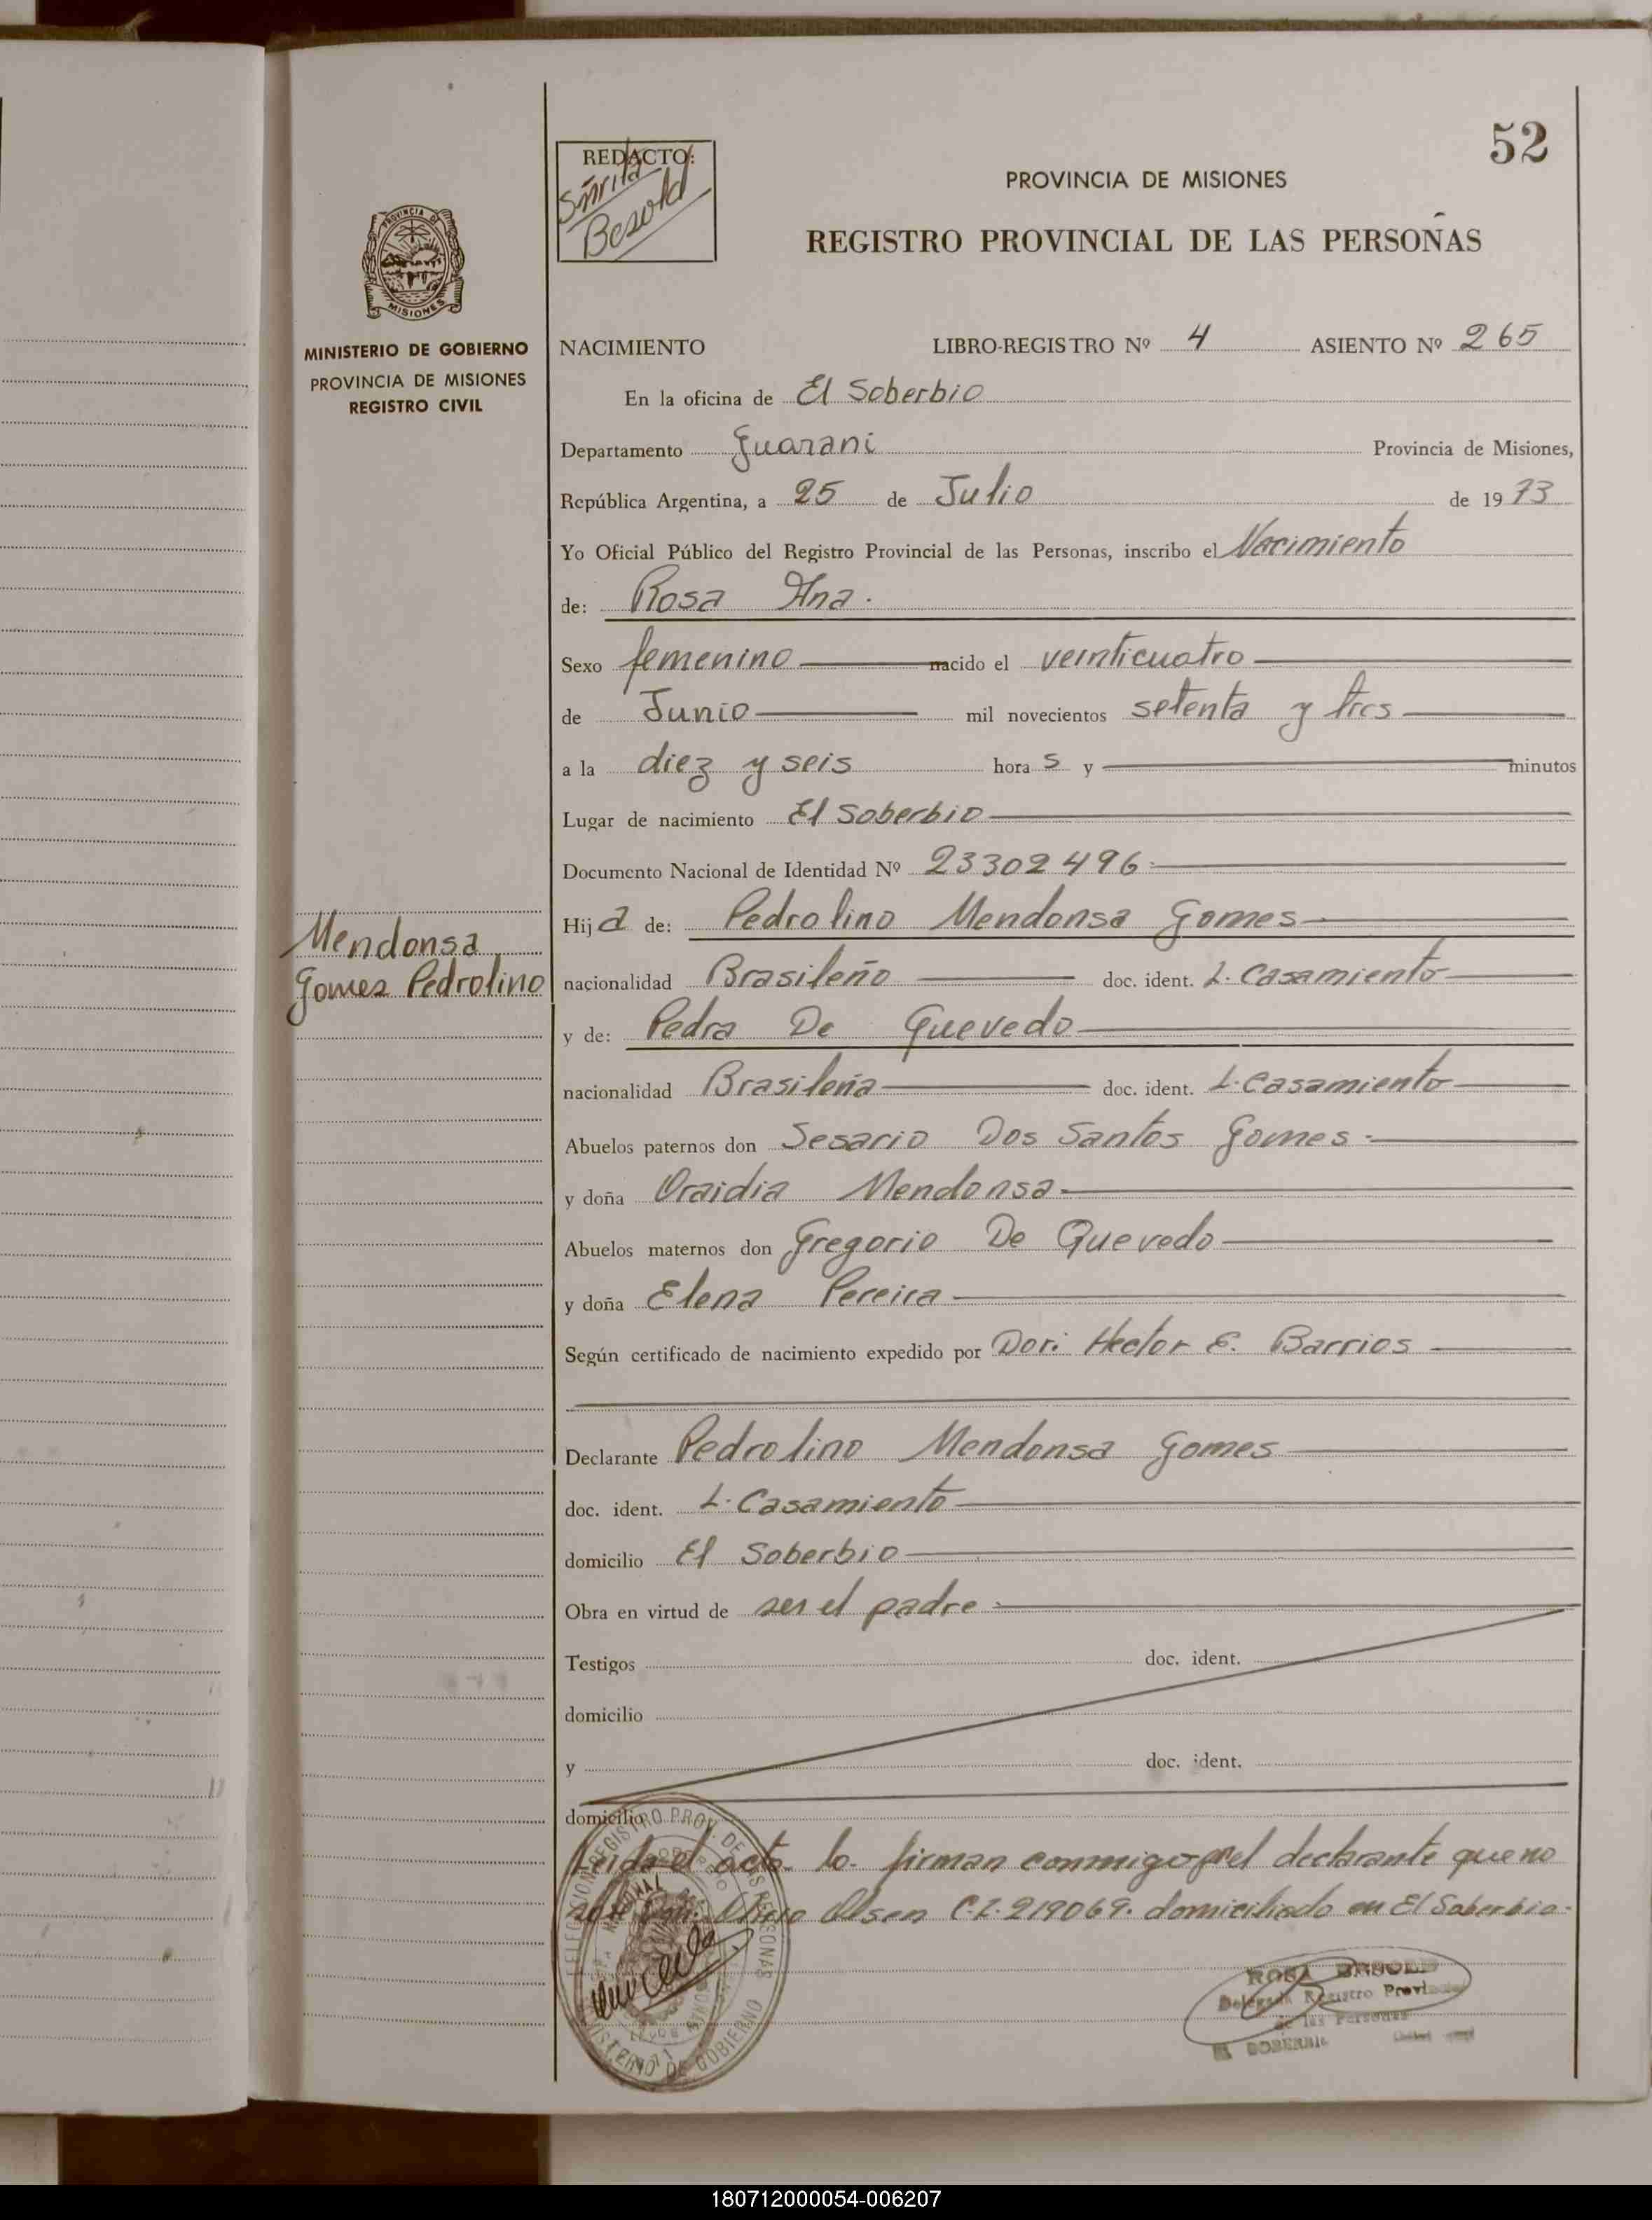 52
REDACTO:
Sñrita
Besold
PROVINCIA DE MISIONES
REGISTRO PROVINCIAL DE LAS PERSONAS
PROVINCIA DE
MISIONES
MINISTERIO DE GOBIERNO
PROVINCIA DE MISIONES
REGISTRO CIVIL
NACIMIENTO LIBRO-REGISTRO Nº 4 ASIENTO Nº 265
En la oficina de El Soberbio
Departamento Guarani Provincia de Misiones,
República Argentina, a 25 de Julio de 1973
Yo Oficial Público del Registro Provincial de las Personas, inscribo el Nacimiento
de: Rosa Ana.
Sexo femenino nacido el veinticuatro
de Junio mil novecientos setenta y tres
a la diez y seis horas y minutos
Lugar de nacimiento El Soberbio
Documento Nacional de Identidad Nº 23302496
Hija de: Pedrolino Mendonsa Gomes
Mendonsa
Gomes Pedrolino
nacionalidad Brasileño doc. ident. L. Casamiento
y de: Pedra De Quevedo
nacionalidad Brasileña doc. ident. L. Casamiento
Abuelos paternos don Sesario Dos Santos Gomes
y doña Oraidia Mendonsa
Abuelos maternos don Gregorio De Quevedo
y doña Elena Pereira
Según certificado de nacimiento expedido por Dor: Hector E. Barrios
Declarante Pedrolino Mendonsa Gomes
doc. ident. L. Casamiento
domicilio El Soberbio
Obra en virtud de ser el padre
Testigos doc. ident.
domicilio
y doc. ident.
domicilio
Leida el acta lo firman conmigo p el declarante que no
Olsen C.I. 219069. domiciliado en El Soberbio.
REGISTRO PROV. DE LAS PERSONAS
MINISTERIO DE GOBIERNO
ROSA BESOLD
Delegada Registro Provincial
de las Personas
EL SOBERBIO
180712000054-006207